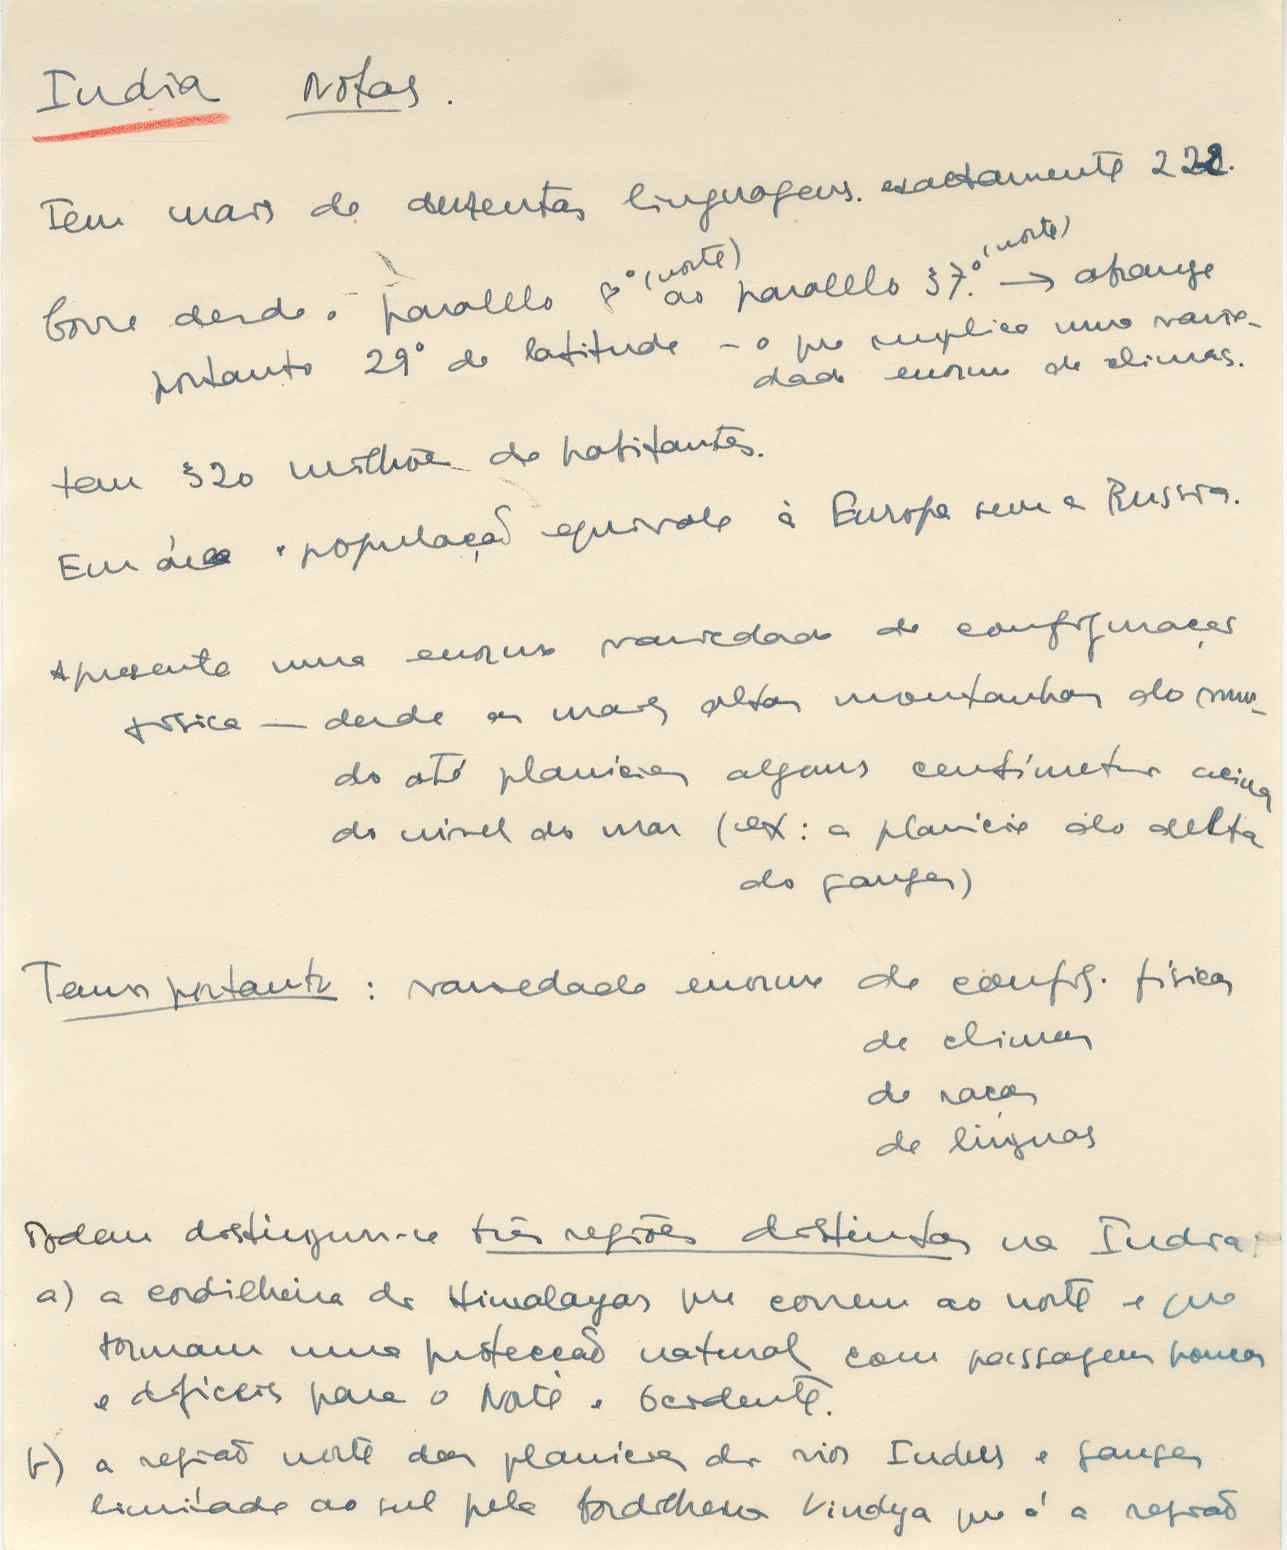 India Notas.
Tem mais de duzentas linguagens. exactamente 222.
(norte) (norte)
Corre desde o parallelo 8° ao parallelo 37.° → abrange
portanto 29° de latitude – o que implica uma varie-
dade enorme de climas.
tem 320 milhões de habitantes.
Em área e população equivale à Europa sem a Russia.
Apresenta uma enorme variedade de configurações
física — desde as mais altas montanhas do mun-
do até planicies alguns centímetros acima
do nivel do mar (ex: a planicie do delta
do ganges)
Temos portanto : variedade enorme de config. físicas
de climas
de raças
de línguas
Podem distinguir-se três regiões distintas na India:
a) a cordilheira dos Himalayas que correm ao norte e que
formam uma protecção natural com passagens poucas
e dificeis para o Norte e Ocidente.
b) a região norte das planicies dos rios Indus e ganges
limitada ao sul pela Cordilheira Vindya que é a região